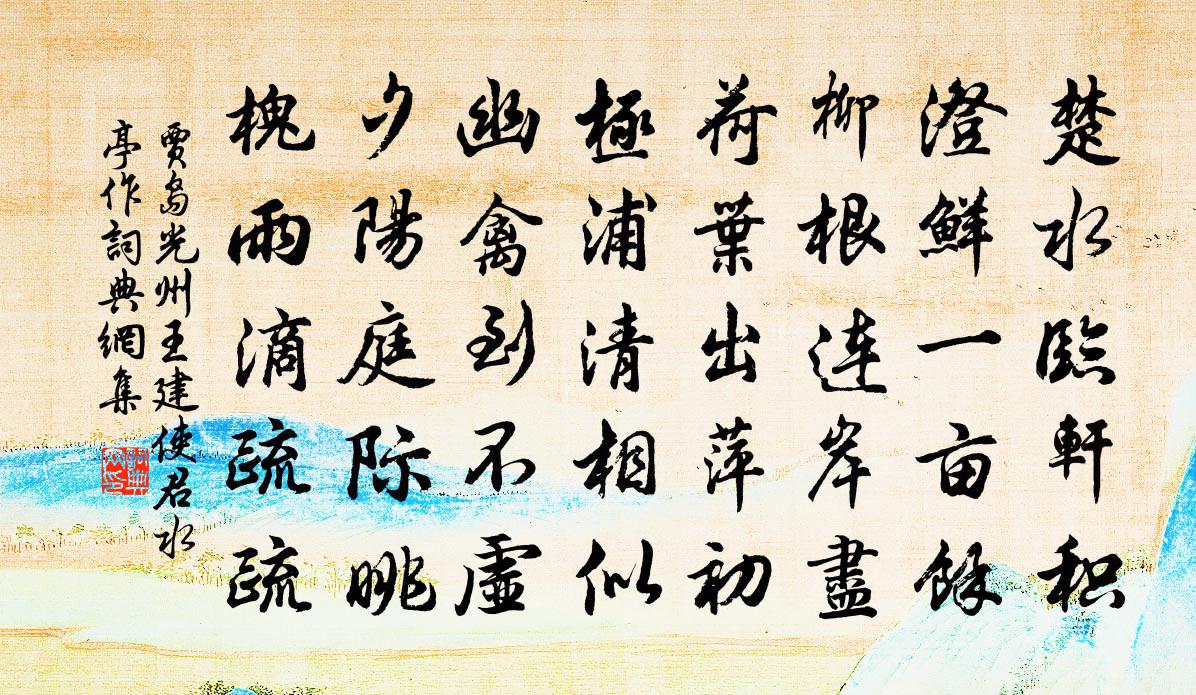 楚水臨軒积
澄鮮一亩餘
柳根连岸盡
荷葉出萍初
極浦清相似
幽禽到不虛
夕陽庭际眺
槐雨滴疏疏
賈島光州王建使君水
亭作詞典網集